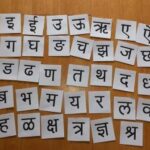 इ ई उ ऊ ऋ ए ऐ
ग घ ङ च ज
ड ढ ण त थ द ध
ब भ म य र ल
ह ळ क्ष त्र ज्ञ श्र